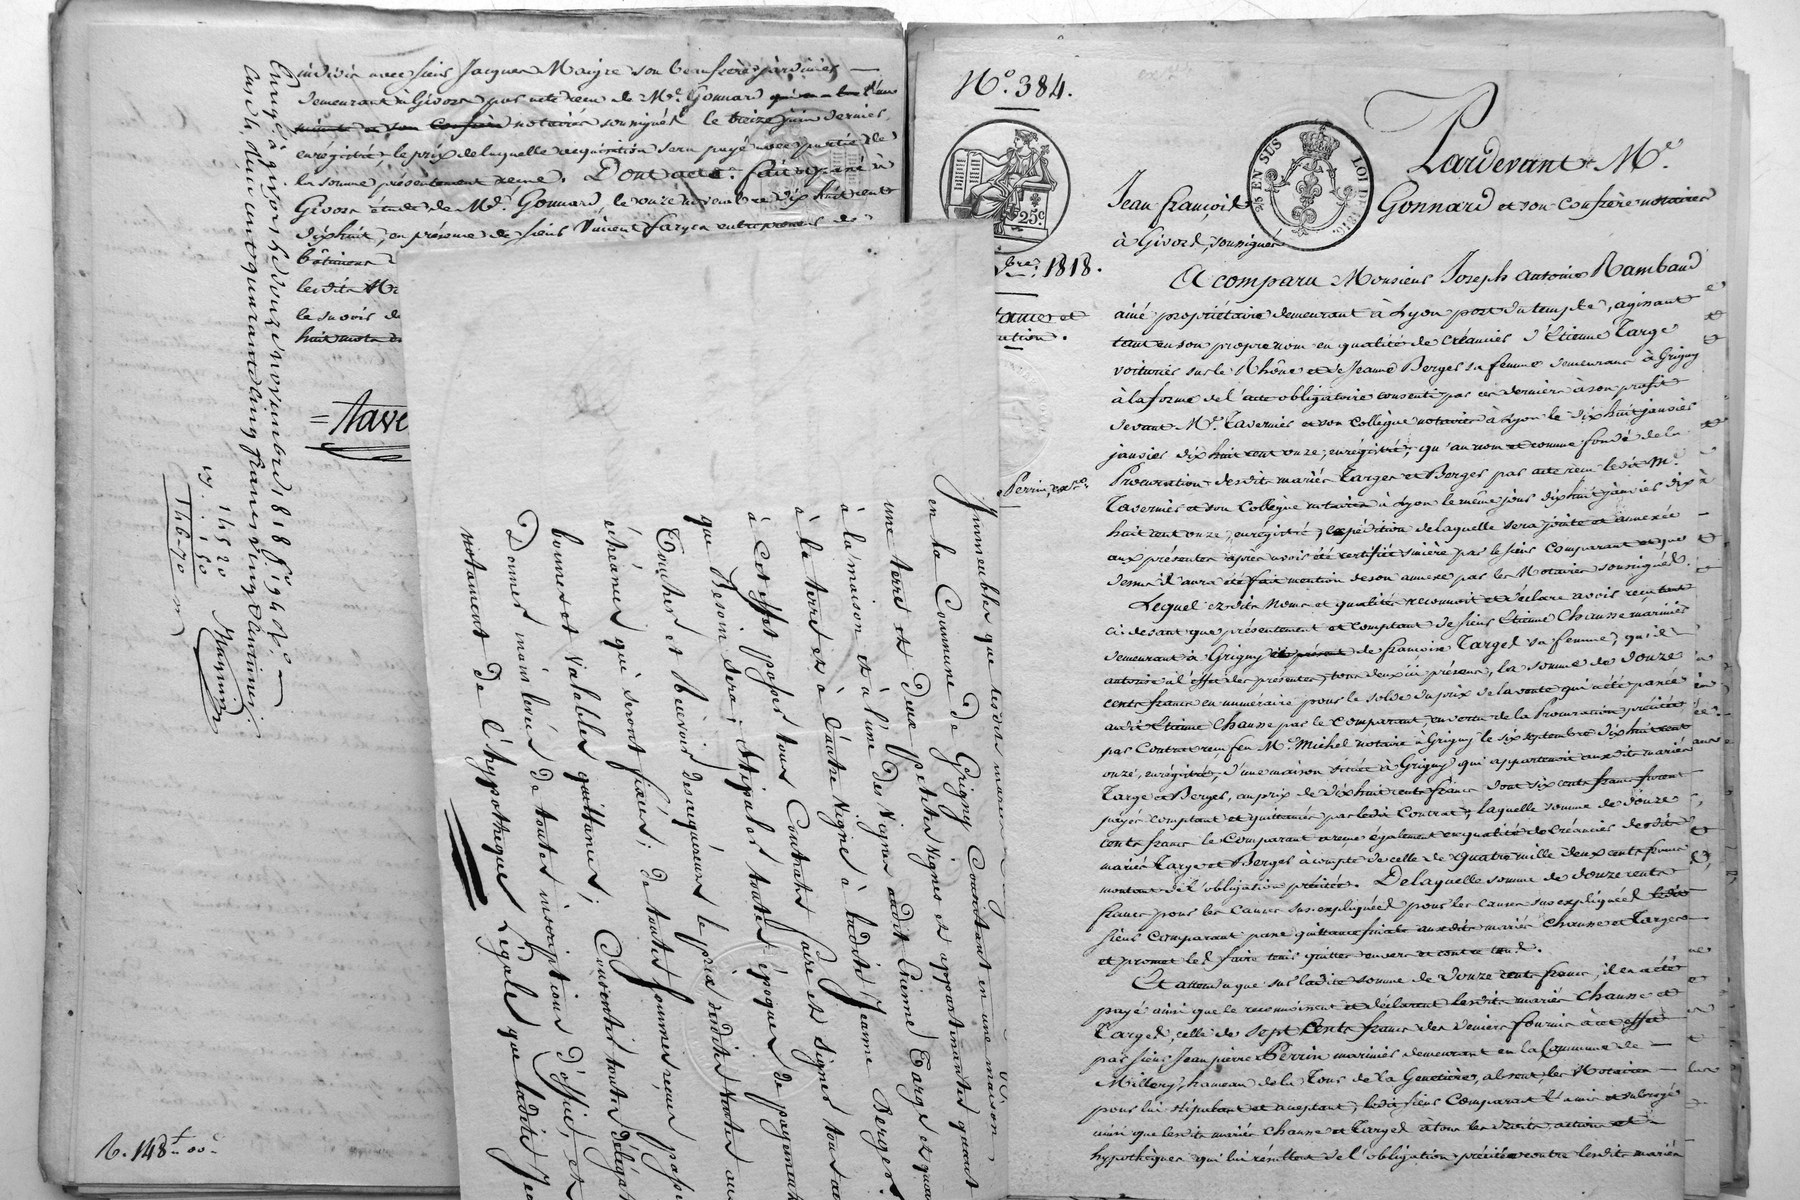 indivis avec sieur Jacques Maigre son beaufrère jardinier
demeurant à Givors par acte reçu de Me. Gonnard
notaires soussignés le treize juin dernier,
enrégistré, le prix de laquelle acquisition sera payé avec partie de
la somme présentement reçue. Dont acte. fait et passé à
Givors étude de Me. Gonnard, le onze novembre dix huit cent
dixhuit, en présence de sieur Vincent entrepreneur de
bâtimens
lesdits
le savoir
huit mots
= Tave
Enregé à givors le douze novembre 1818 fo. 94 vo.
Case 4, dûe cent quarante cinq francs vingt centimes.
R. 148f 00c
Immeubles que lesdits mariés
en la Commune de Grigny Consistant en une maison
une terre et deux petites Vignes et appartenantes quant
à la maison et à l'une des Vignes audit Etienne Targe et quant
à la terre et à l'autre Vigne à ladite Jeanne Berger.
à Cet effet passer tous Contrats faire et signer tout
que Besoin sera; Stipuler toutes époques de payement
Toucher et Recevoir des acquéreurs le prix desdites Ventes aux
échéances qui seront fixées; de toutes sommes reçues passer
bonnes et Valables quittances; Consentir toutes délégat
Donner mainlevée de toutes inscriptions d'office, et
notament de l'hypothèque Légale que ladite Jea
No. 384.
25c
bre. 1818.
tances et
ation.
Perrin,
2/5 EN SUS
LOI DE 1816.
Pardevant Me.
Jean françois Gonnard et son confrère notaires
à Givors, soussignés
A comparu Monsieur Joseph Antoine Rambaud
ainé propriétaire demeurant à Lyon port du temple, agissant
tant en son propre nom en qualité de créancier d'Etienne Targe
voiturier sur le Rhône et de Jeanne Berger sa femme demeurant à Grigny
à la forme de l'acte obligatoire consenti par ces derniers à son profit
devant Me. Tavernier et son collègue notaires à Lyon le dix huit janvier
janvier dix huit cent onze, enrégistré, qu'au nom et comme fondé de la
Procuration desdits mariés Targe et Berger par acte reçu ledit Me.
Tavernier et son Collègue notaires à Lyon le même jour dix huit janvier dix
huit cent onze, enregistré, expédition de laquelle sera jointe et annexée
aux présentes après avoir été certifiée sincère par le sieur comparant et que
dessus il aura été fait mention de son annexe par les Notaires soussignés.
Lequel ezdits noms et qualités reconnoit et déclare avoir reçu tant
ci-devant que présentement et comptant de sieur Etienne Chausse marinier
demeurant à Grigny et de françoise Targe sa femme, qu'il
autorise à l'effet des présentes, tous deux ici présens, la somme de douze
cents francs en numéraire pour le solde du prix de la vente qui a été passée
audit Etienne Chausse par le comparant, en vertu de la Procuration précitée
par Contrat reçu feu Me. Michel notaire à Grigny le six septembre dix huit cent
onze, enrégistré, d'une maison située à Grigny qui appartenoit auxdits mariés
Targe et Berger, au prix de dix huit cents francs dont six cents francs furent
payés comptant et quittancés par ledit Contrat; laquelle somme de douze
cents francs le comparant a reçue également en qualité de créancier desdits
mariés Targe et Berger à compte de celle de quatre mille deux cents francs
montant de l'obligation précitée. De laquelle somme de douze cents
francs pour les causes sus expliquées pour les causes sus expliquées ledit
sieur comparant passe quittance finale auxdits mariés Chausse et Targe
et promet les faire tenir quittes envers et contre tous.
Et attendu que sur ladite somme de douze cents francs, il en a été
payé ainsi que le reconnoissent et déclarent lesdits mariés Chausse et
Targe, celle de sept cents francs des deniers fournis à cet effet
par sieur Jean pierre Perrin marinier demeurant en la Commune de
Millery, hameau de la Tour de la Genetière, absent, les Notaires
pour lui stipulant et acceptant, ledit sieur Comparant l'a mis et subrogé
ainsi que lesdits mariés Chausse et Targe à tous les droits, actions et
hypothèques qui lui résultent de l'obligation précitée contre lesdits mariés